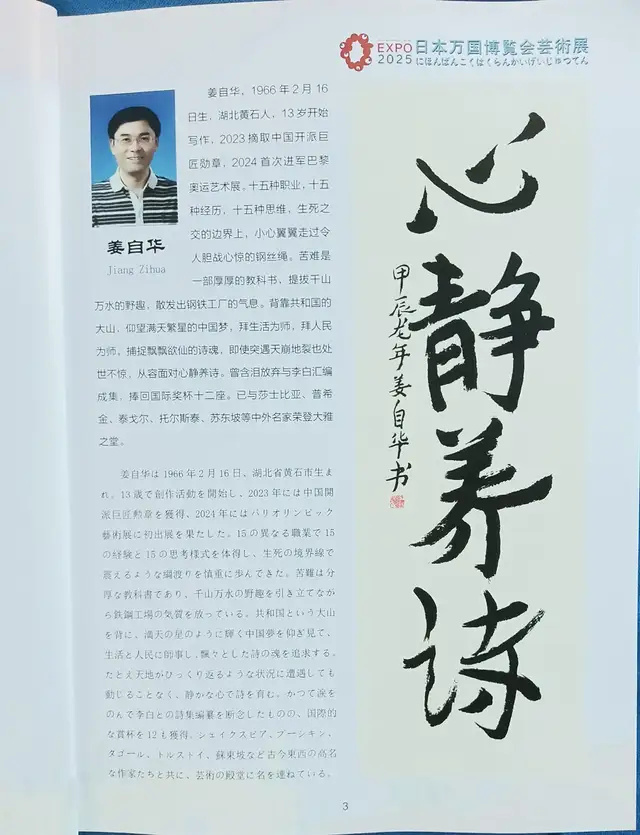 EXPO
2025
日本万国博覧会芸術展
にほんばんこくはくらんかいげいじゅつてん
姜自华，1966年2月16
日生，湖北黄石人，13岁开始
写作，2023摘取中国开派巨
匠勋章，2024首次进军巴黎
奥运艺术展。十五种职业，十五
种经历，十五种思维，生死之
交的边界上，小心翼翼走过令
人胆战心惊的钢丝绳。苦难是
一部厚厚的教科书，提拔千山
万水的野趣，散发出钢铁工厂的气息。背靠共和国的
大山，仰望满天繁星的中国梦，拜生活为师，拜人民
为师，捕捉飘飘欲仙的诗魂，即使突遇天崩地裂也处
世不惊，从容面对心静养诗。曾含泪放弃与李白汇编
成集，捧回国际奖杯十二座。已与莎士比亚、普希
金、泰戈尔、托尔斯泰、苏东坡等中外名家荣登大雅
之堂。
姜自华
Jiang Zihua
姜自华は1966年2月16日、湖北省黄石市生ま
れ。13歳で創作活動を開始し、2023年には中国開
派巨匠勲章を獲得、2024年にはパリオリンピック
藝術展に初出展を果たした。15の異なる職業で15
の経験と15の思考様式を体得し、生死の境界線で
震えるような綱渡りを慎重に歩んできた。苦難は分
厚な教科書であり、千山万水の野趣を引き立てなが
ら鉄鋼工場の気質を放っている。共和国という大山
を背に、満天の星のように輝く中国夢を仰ぎ見て、
生活と人民に師事し、飄々とした詩の魂を追求する。
たとえ天地がひっくり返るような状況に遭遇しても
動じることなく、静かな心で詩を育む。かつて涙を
のんで李白との詩集編纂を断念したものの、国際的
な賞杯を12も獲得。シェイクスピア、プーシキン、
タゴール、トルストイ、蘇東坡など古今東西の高名
な作家たちと共に、芸術の殿堂に名を連ねている。
心静养诗
甲辰龙年姜自华书
3